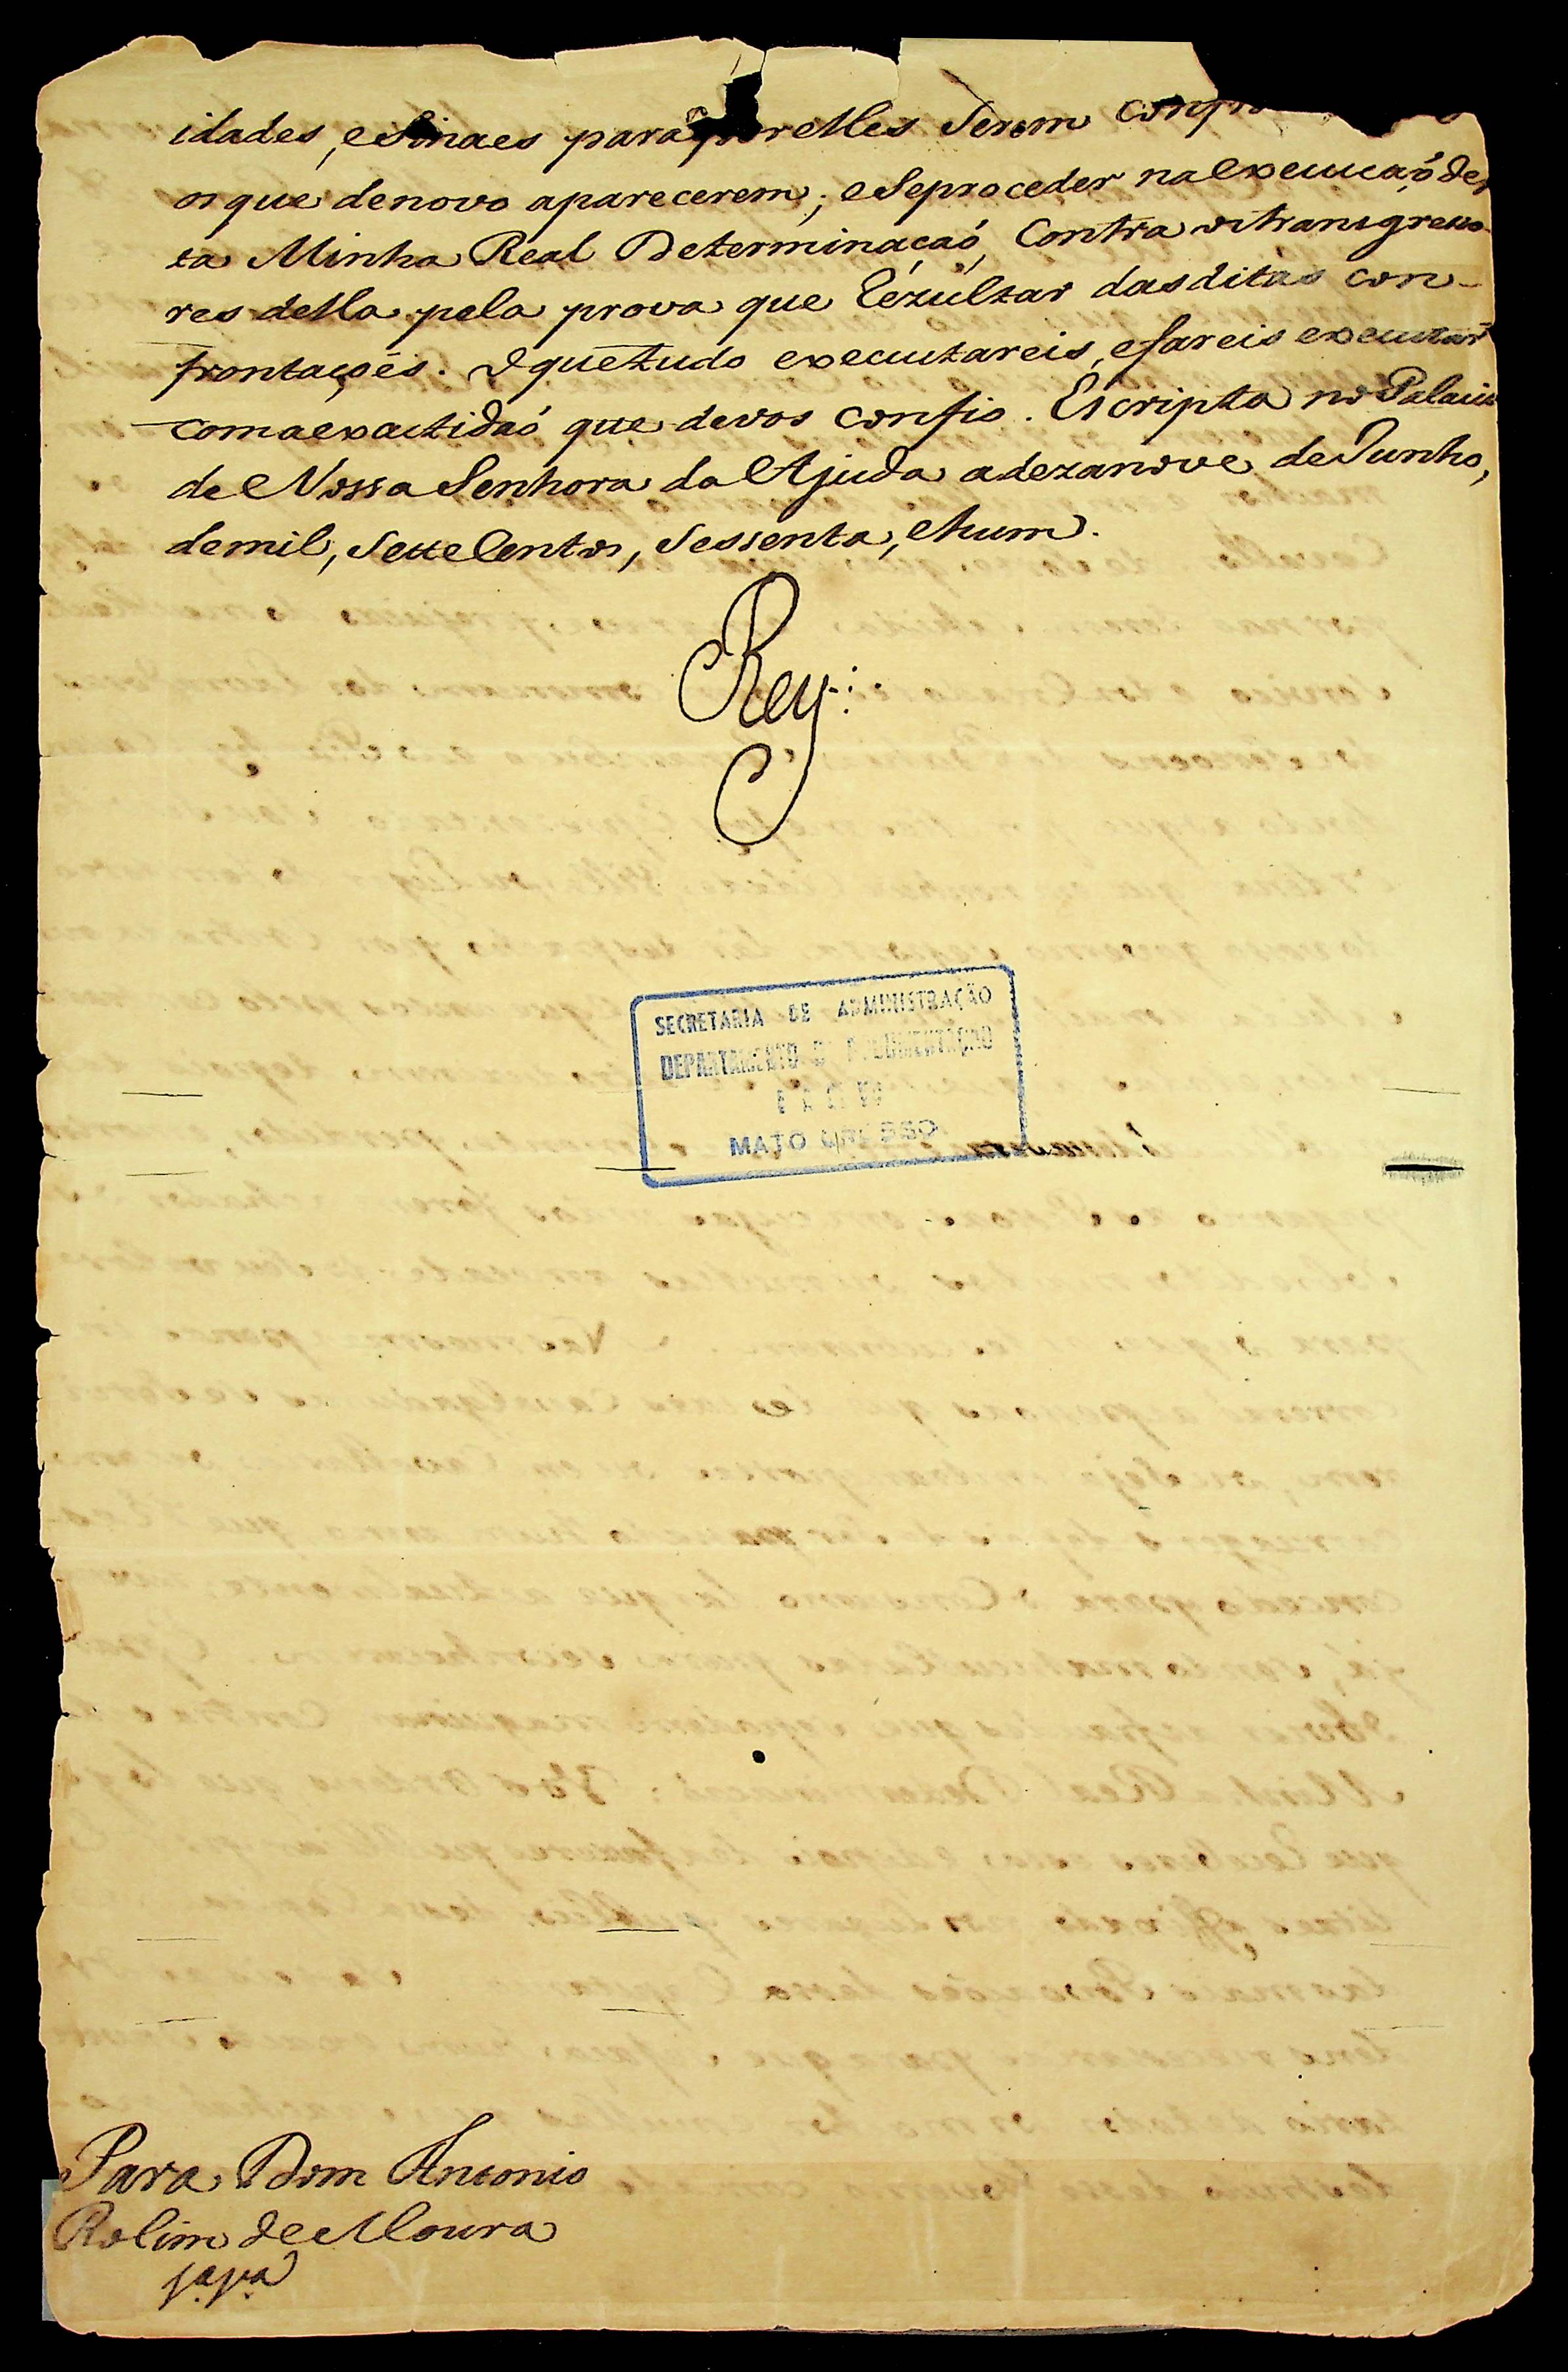 idades, e Sinaes para por elles Serem
os que denovo aparecerem; e Seproceder na execuçaõ des
ta Minha Real Determinaçaõ, Contra os transgresso-
res della pela prova que rezultar dasditas con-
frontaçoẽs. O que tudo executareis, efareis executar
com a exactidaõ que devos confio. Escripta no Palacio
de Nossa Senhora da Ajuda adezanove de Junho,
demil, sette Centos, sessenta, ehum.
Rey
SECRETARIA DE ADMINISTRAÇÃO
DEPARTAMENTO DE DOCUMENTAÇÃO
MATO GROSSO
Para Dom Antonio
Rolim de Moura